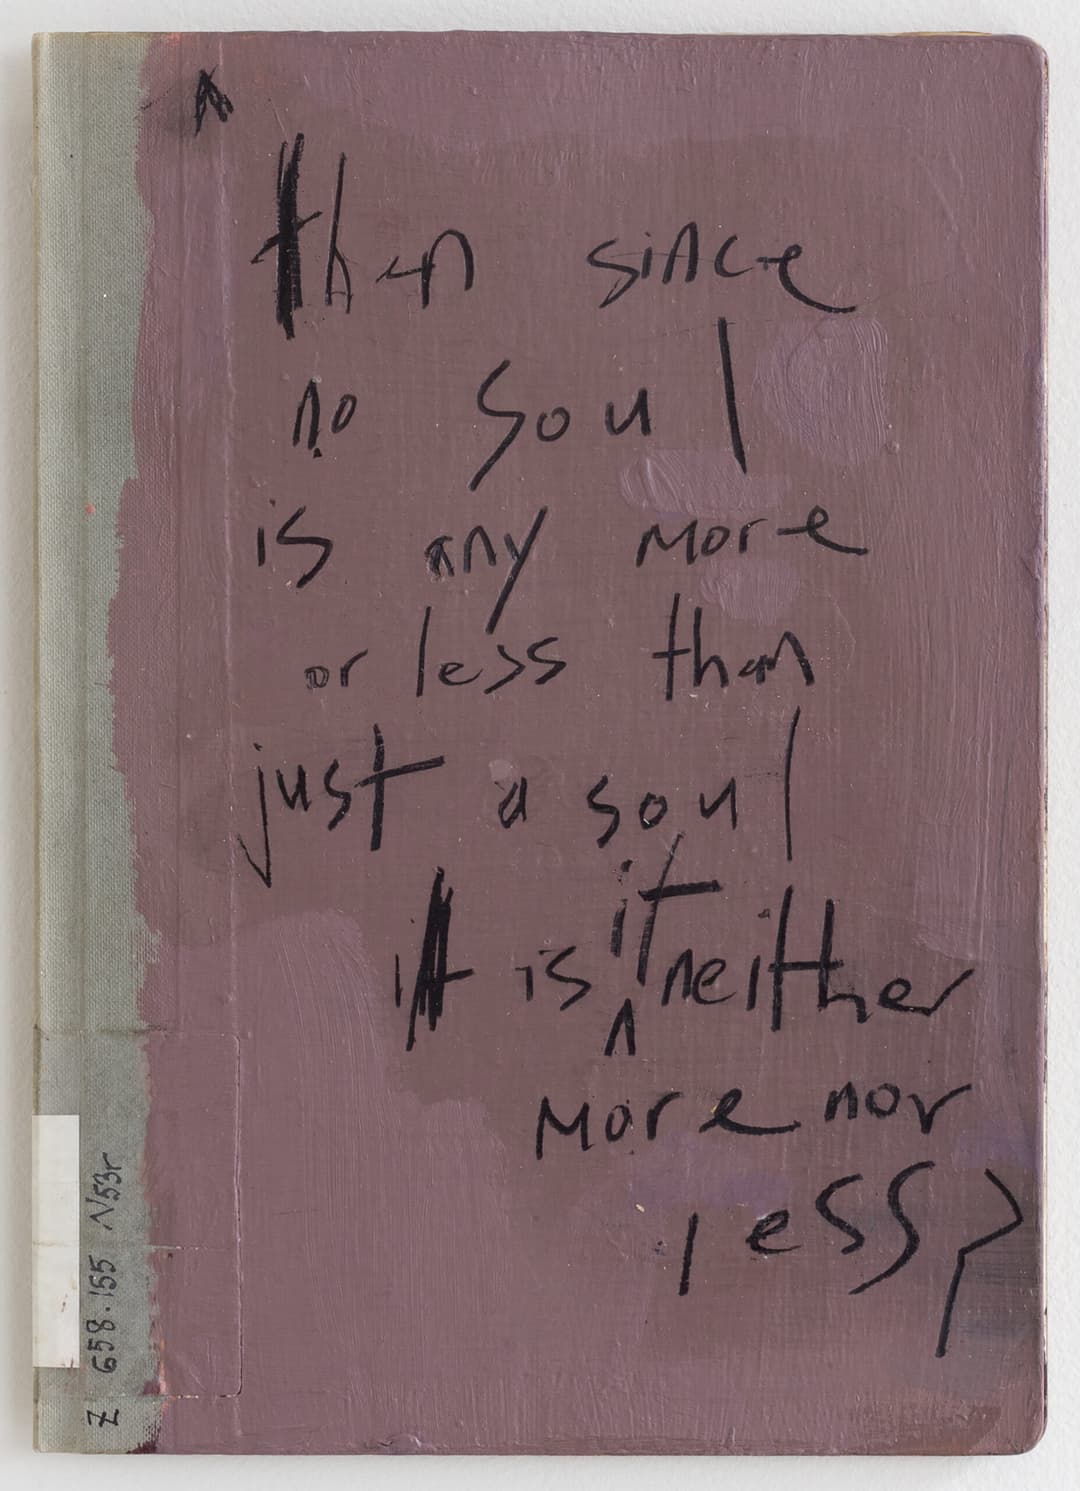 then since
no soul
is any more
or less than
just a soul
it is it neither
more nor
less?
Z 658.155 N53r